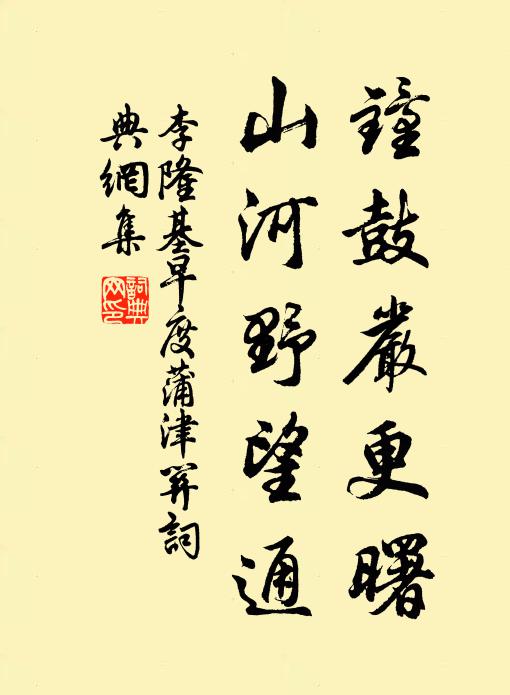 鐘鼓嚴更曙
山河野望通
李隆基早度蒲津關詞
典網集
詞典
网印